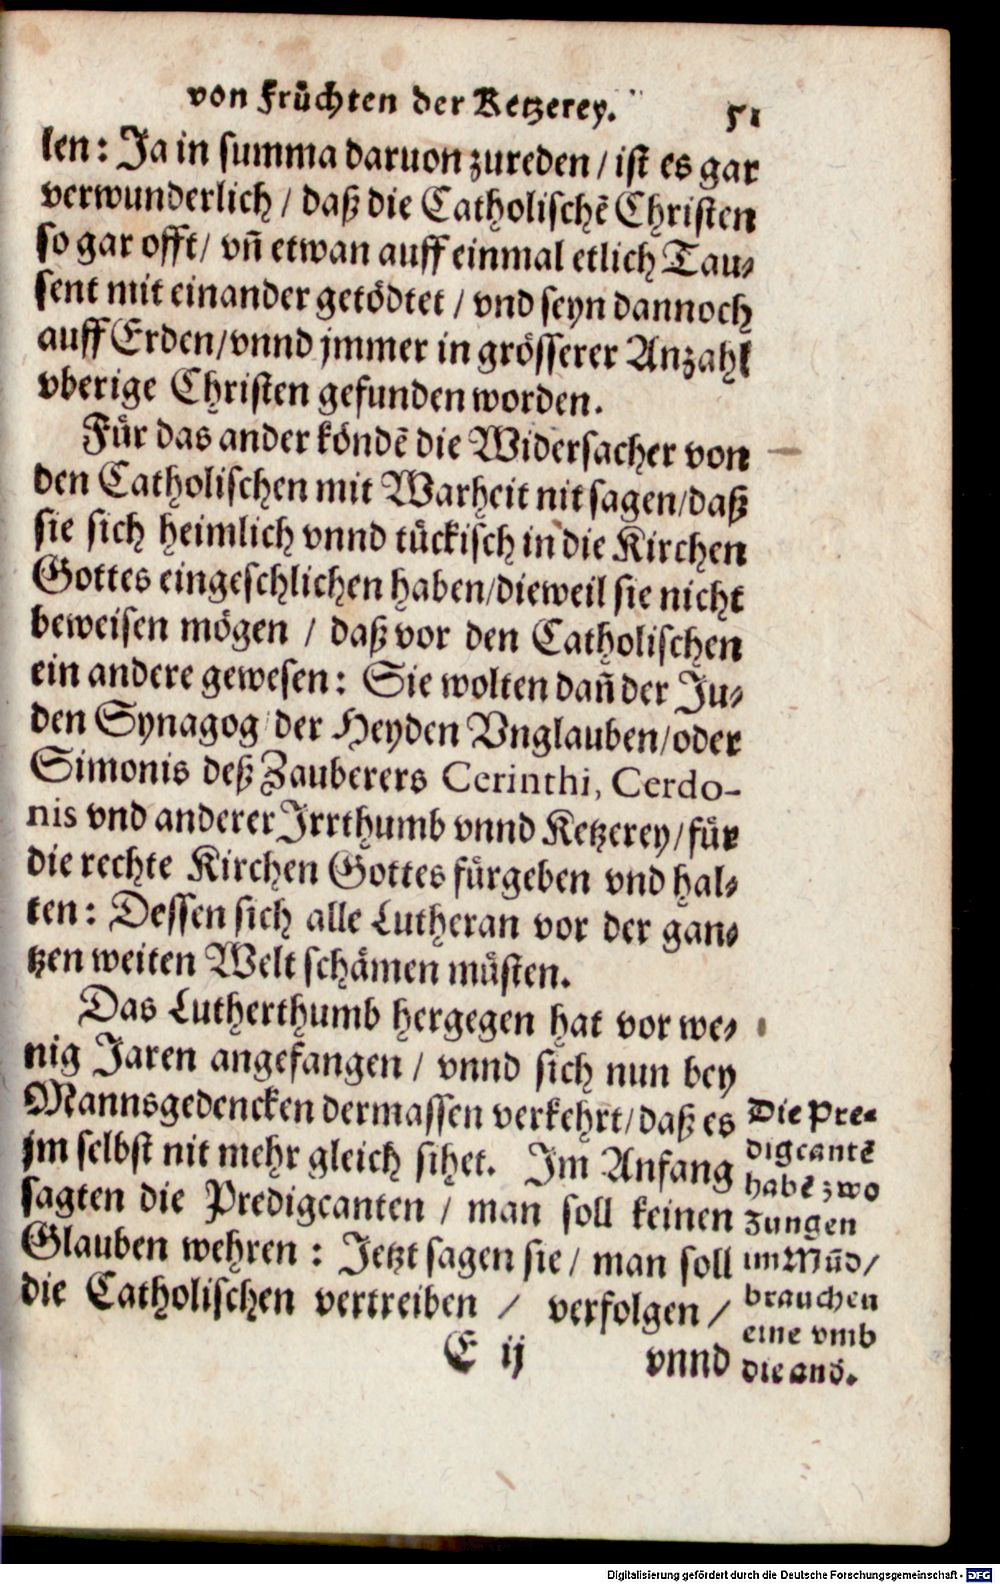 von Früchten der Ketzerey. 51
len: Ja in summa daruon zureden / ist es gar
verwunderlich / daß die Catholischẽ Christen
so gar offt / vñ etwan auff einmal etlich Tau-
sent mit einander getödtet / vnd seyn dannoch
auff Erden / vnnd jmmer in grösserer Anzahl
vberige Christen gefunden worden.
Für das ander köndẽ die Widersacher von
den Catholischen mit Warheit nit sagen / daß
sie sich heimlich vnnd tückisch in die Kirchen
Gottes eingeschlichen haben / dieweil sie nicht
beweisen mögen / daß vor den Catholischen
ein andere gewesen: Sie wolten dañ der Ju-
den Synagog / der Heyden Vnglauben / oder
Simonis deß Zauberers Cerinthi, Cerdo-
nis vnd anderer Irrthumb vnnd Ketzerey / für
die rechte Kirchen Gottes fürgeben vnd hal-
ten: Dessen sich alle Lutheran vor der gan-
tzen weiten Welt schämen müsten.
Das Lutherthumb hergegen hat vor we-
nig Jaren angefangen / vnnd sich nun bey
Mannsgedencken dermassen verkehrt / daß es
jm selbst nit mehr gleich sihet. Im Anfang
sagten die Predigcanten / man soll keinen
Glauben wehren: Jetzt sagen sie / man soll
die Catholischen vertreiben / verfolgen /
Die Pre-
digcantẽ
habẽ zwo
Zungen
im Mũd /
brauchen
eine vmb
die and̃.
E ij vnnd
Digitalisierung gefördert durch die Deutsche Forschungsgemeinschaft - DFG